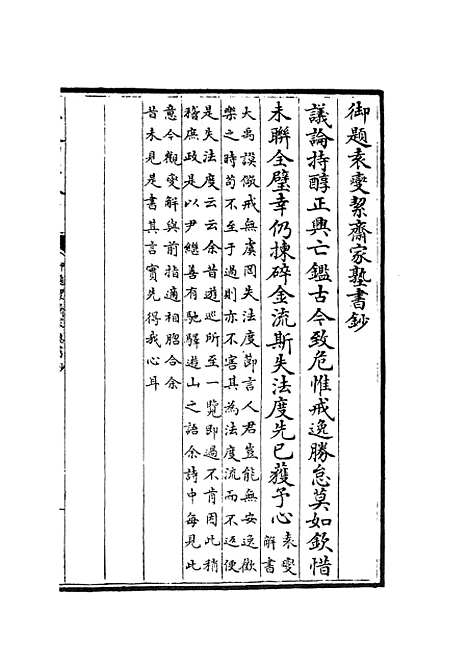 御題袁燮絜齋家塾書鈔
議論持醇正興亡鑑古今致危惟戒逸勝怠莫如欽惜
未聯全璧幸仍揀碎金流斯失法度先已獲予心袁燮解書
大禹謨儆戒無虞罔失法度節言人君豈能無安逸歡
樂之時苟不至于過則亦不害其為法度流而不返便
是失法度云云余昔遊巡所至一覽即過不肯因此稍
稽庶政是以尹繼善有馳驛遊山之語余詩中每見此
意今觀燮解與前指適相脗合余
昔未見是書其言實先得我心耳